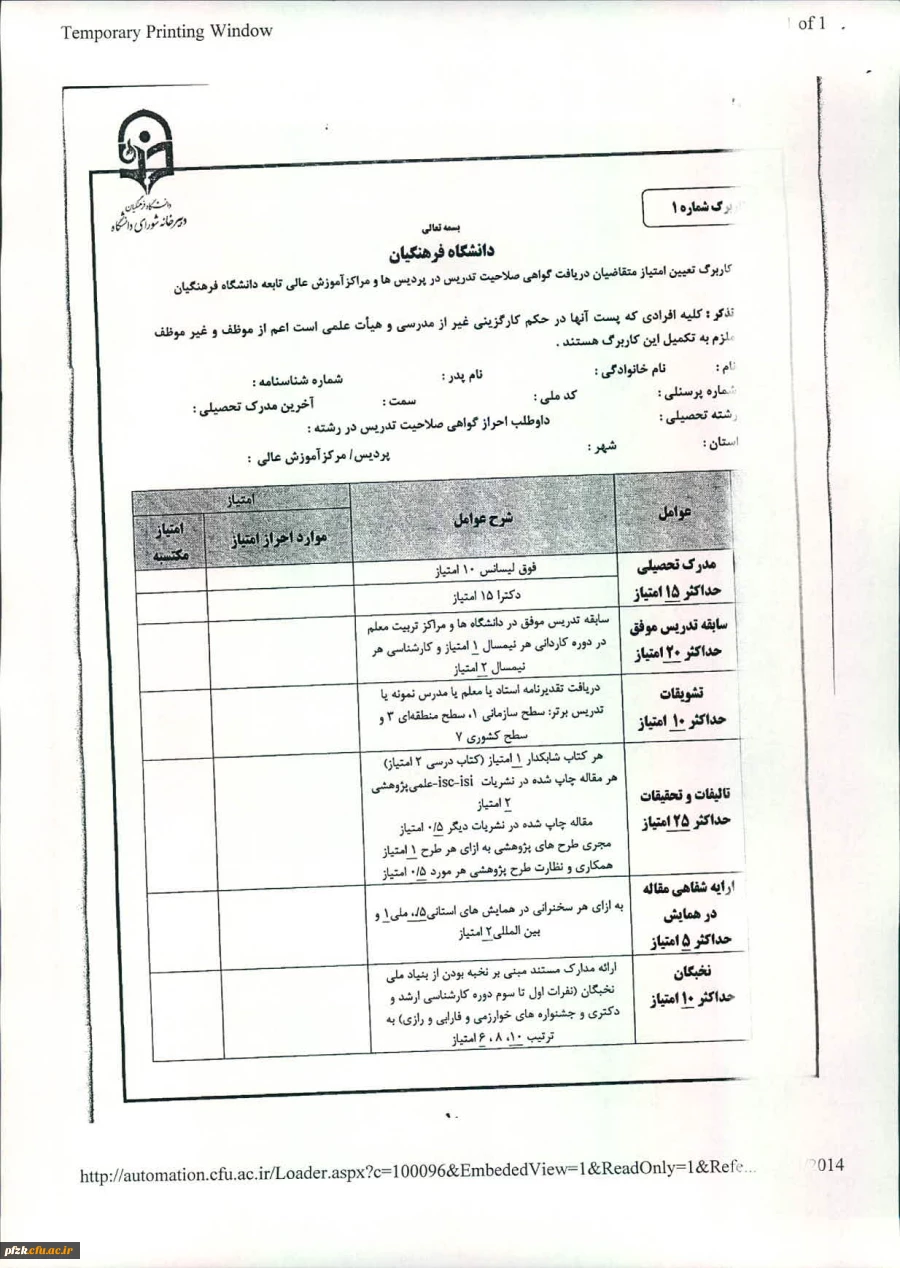 Temporary Printing Window
of 1
دانشگاه فرهنگیان
دبیرخانه شورای دانشگاه
برگ شماره ۱
بسمه تعالی
دانشگاه فرهنگیان
کاربرگ تعیین امتیاز متقاضیان دریافت گواهی صلاحیت تدریس در پردیس ها و مراکز آموزش عالی تابعه دانشگاه فرهنگیان
تذکر : کلیه افرادی که پست آنها در حکم کارگزینی غیر از مدرسی و هیأت علمی است اعم از موظف و غیر موظف
ملزم به تکمیل این کاربرگ هستند .
نام : نام خانوادگی : نام پدر : شماره شناسنامه :
شماره پرسنلی : کد ملی : سمت : آخرین مدرک تحصیلی :
رشته تحصیلی : داوطلب احراز گواهی صلاحیت تدریس در رشته :
استان : شهر : پردیس/ مرکز آموزش عالی :
عوامل
شرح عوامل
امتیاز
موارد احراز امتیاز
امتیاز
مکتسبه
مدرک تحصیلی
حداکثر ۱۵ امتیاز
فوق لیسانس ۱۰ امتیاز
دکترا ۱۵ امتیاز
سابقه تدریس موفق
حداکثر ۲۰ امتیاز
سابقه تدریس موفق در دانشگاه ها و مراکز تربیت معلم
در دوره کاردانی هر نیمسال ۱ امتیاز و کارشناسی هر
نیمسال ۲ امتیاز
تشویقات
حداکثر ۱۰ امتیاز
دریافت تقدیرنامه استاد یا معلم یا مدرس نمونه یا
تدریس برتر: سطح سازمانی ۱، سطح منطقه‌ای ۳ و
سطح کشوری ۷
تالیفات و تحقیقات
حداکثر ۲۵ امتیاز
هر کتاب شابکدار ۱ امتیاز (کتاب درسی ۲ امتیاز)
هر مقاله چاپ شده در نشریات isc-isi-علمی‌پژوهشی
۲ امتیاز
مقاله چاپ شده در نشریات دیگر ۰/۵ امتیاز
مجری طرح های پژوهشی به ازای هر طرح ۱ امتیاز
همکاری و نظارت طرح پژوهشی هر مورد ۰/۵ امتیاز
ارایه شفاهی مقاله
در همایش
حداکثر ۵ امتیاز
به ازای هر سخنرانی در همایش های استانی ۰/۵، ملی ۱ و
بین المللی ۲ امتیاز
نخبگان
حداکثر ۱۰ امتیاز
ارائه مدارک مستند مبنی بر نخبه بودن از بنیاد ملی
نخبگان (نفرات اول تا سوم دوره کارشناسی ارشد و
دکتری و جشنواره های خوارزمی و فارابی و رازی) به
ترتیب ۱۰، ۸ ، ۶ امتیاز
http://automation.cfu.ac.ir/Loader.aspx?c=100096&EmbededView=1&ReadOnly=1&Refe... /2014
pfzk.cfu.ac.ir